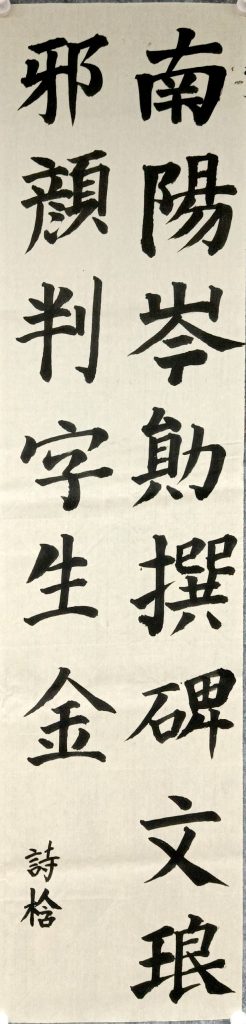 南陽岑勛撰碑文琅
邪顔判字生金
詩